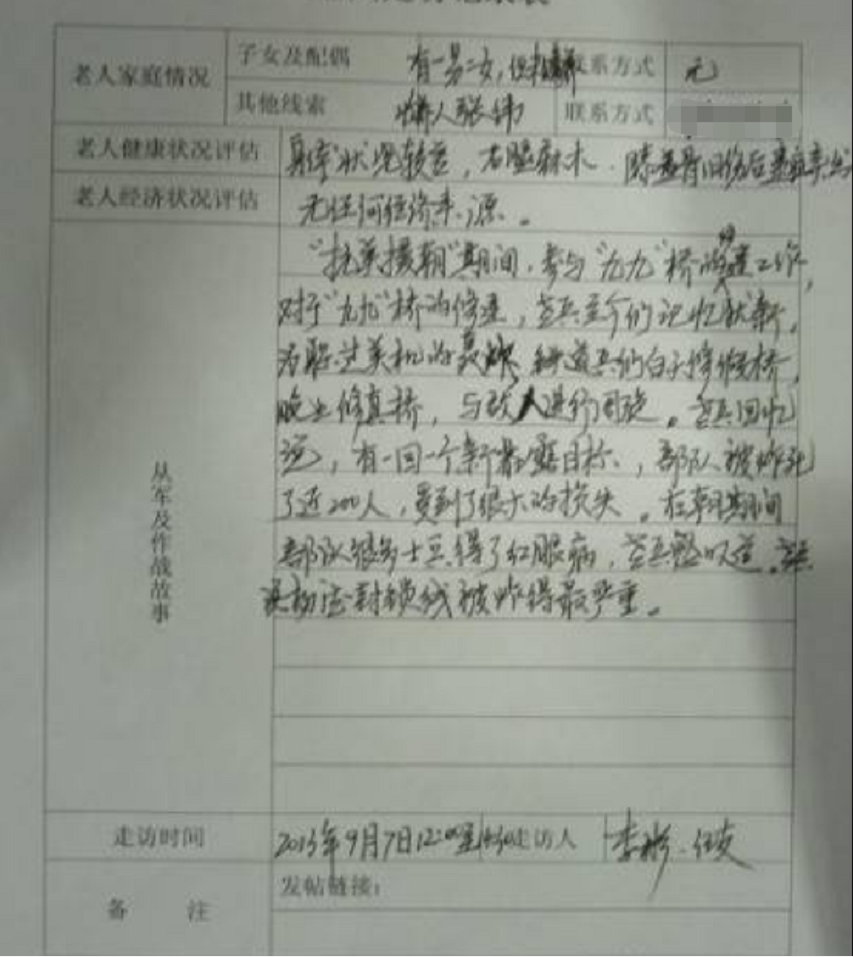 老人家庭情况 子女及配偶 有一男二女，但 联系方式 无
其他线索 人张伟 联系方式
老人健康状况评估 身体状况较差，右腿麻木，膝盖骨旧伤后
老人经济状况评估 无任何经济来源。
"抗美援朝"期间，参与"九九"桥的修建工作，
对于"九九"桥的修建，老兵至今们记忆犹新。
为躲过美机的轰炸，铁道兵们白天撑假桥，
晚上修真桥，与敌人进行周旋。老兵回忆
说，有一回一个新 暴露目标，部队被炸死
了近200人，受到了很大的损失。在朝期间
部队很多士兵得了红眼病，老兵
封锁线被炸得最严重。
从军及作战故事
走访时间 2013年9月7日12:00至 走访人 李彬、任友
备 注 发帖链接：